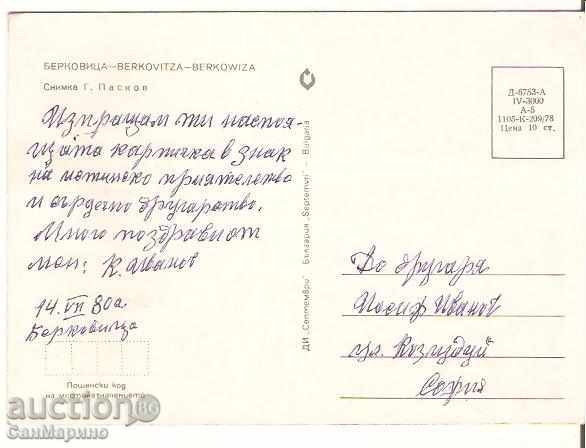 БЕРКОВИЦА—BERKOVITZA—BERKOWIZA
Снимка Г. Пасков
Изпращам ти настоя-
щата картичка в знак
на истинско приятелство
и сърдечно другарство.
Много поздрави от
мен: К. Иванов
14. VII 80 г.
Берковица
Пощенски код
на местоназначението
ДИ „Септември" България „Septemvri" - Bulgaria
Д-6753-А
IV-3000
А-5
1105-К-209/78
Цена 10 ст.
До другаря
Иосиф Иванов
ул. Козлудуй
София
auction BG
СанМарино